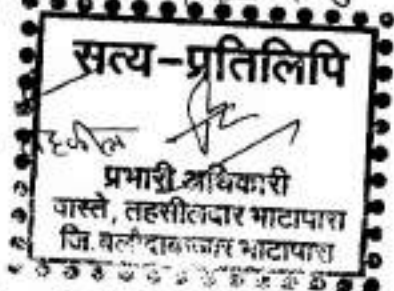 सत्य-प्रतिलिपि
प्रभारी अधिकारी
वास्ते, तहसीलदार भाटापारा
जि. बलौदाबाजार भाटापारा